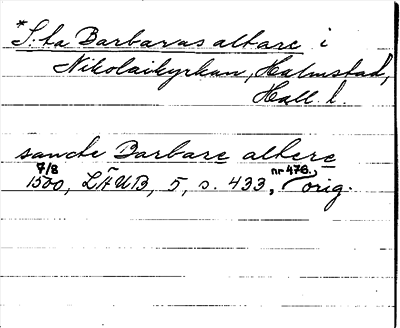 *S:ta Barbaras altare i
Nikolaikyrkan, Halmstad,
Hall. l.
sancte Barbare altere
7/8 nr 476.,
1500, LÄUB, 5, s. 433, orig.